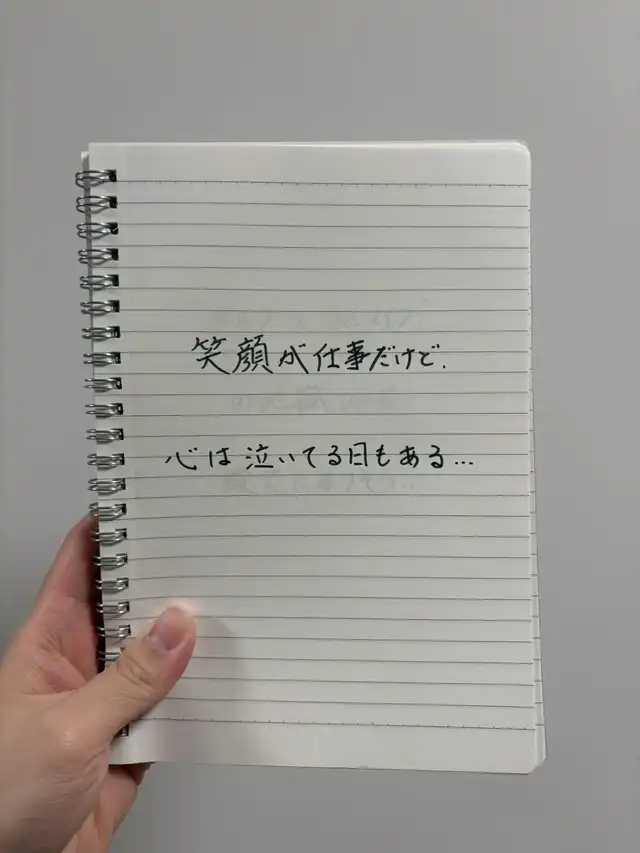 笑顔が仕事だけど、
心は泣いてる日もある...